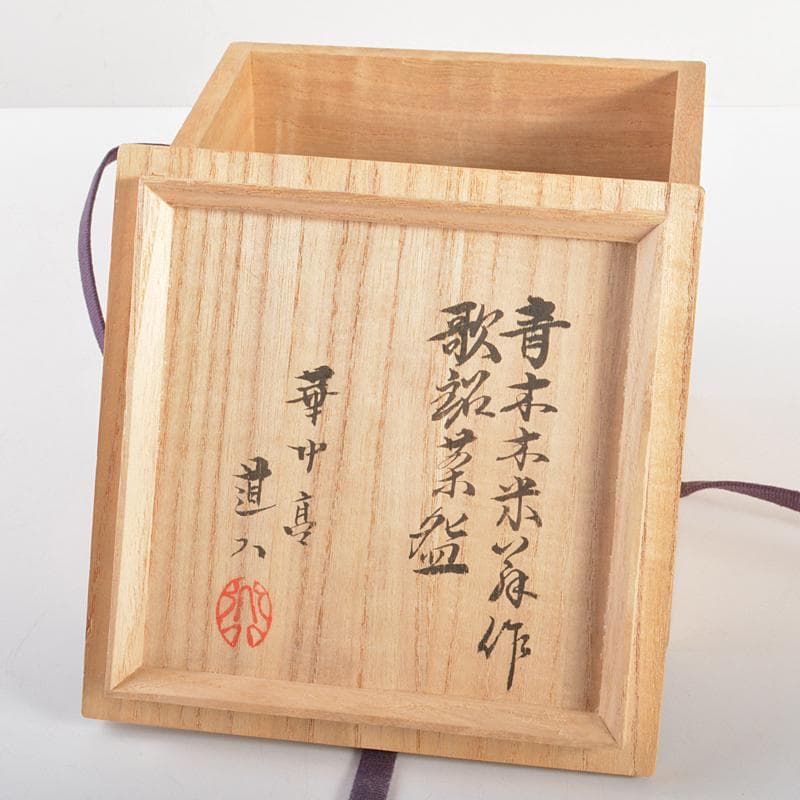 青木木米翁作
歌銘茶盌
華中亭
道八